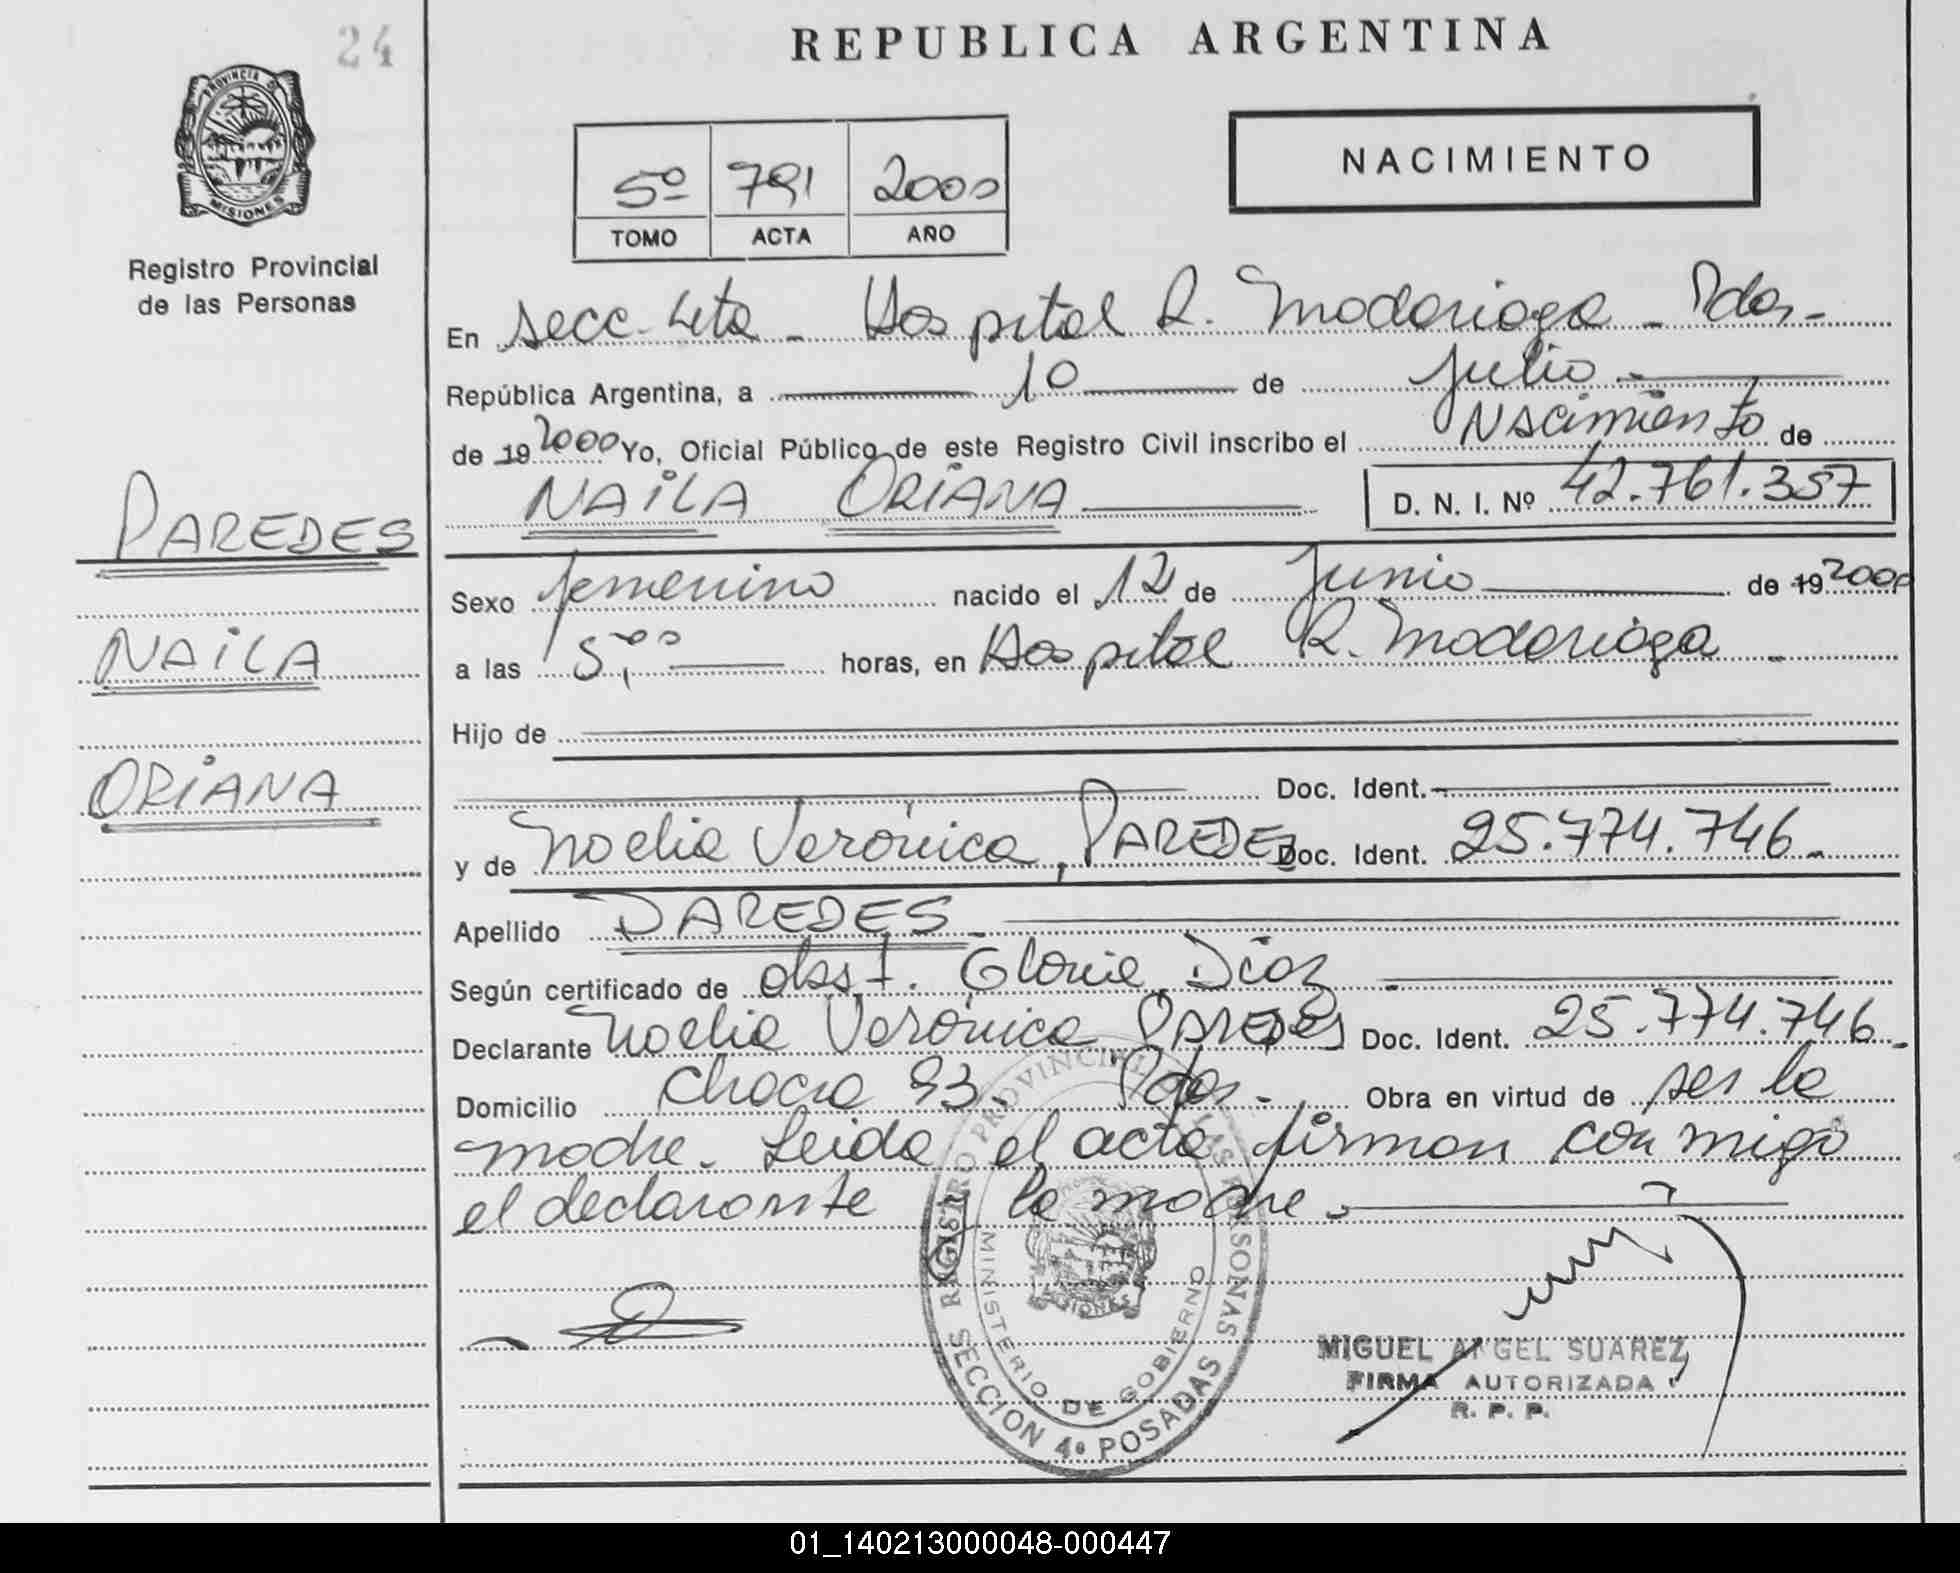 24
REPUBLICA ARGENTINA
PROVINCIA DE
MISIONES
Registro Provincial
de las Personas
5º 791 2000
TOMO ACTA AÑO
NACIMIENTO
En secc. 4ta - Hospital R. Madariaga - Pdas -
República Argentina, a 10 de julio
de 19 2000 Yo, Oficial Público de este Registro Civil inscribo el Nacimiento de
NAILA ORIANA D. N. I. Nº 42.761.357
PAREDES
NAILA
ORIANA
Sexo femenino nacido el 12 de Junio de 19 2000
a las 5,00 horas, en Hospital R. Madariaga -
Hijo de
Doc. Ident.
y de Noelia Verónica, PAREDES Doc. Ident. 25.774.746.
Apellido PAREDES
Según certificado de obst. Gloria Diaz
Declarante Noelia Verónica PAREDES Doc. Ident. 25.774.746
Domicilio Chacra 93. Pdas - Obra en virtud de ser la
madre. Leida el acta firman conmigo
el declarante la madre.
REGISTRO PROVINCIAL DE LAS PERSONAS
MINISTERIO DE GOBIERNO
MISIONES
SECCION 4º POSADAS
MIGUEL ANGEL SUAREZ
FIRMA AUTORIZADA
R. P. P.
01_140213000048-000447